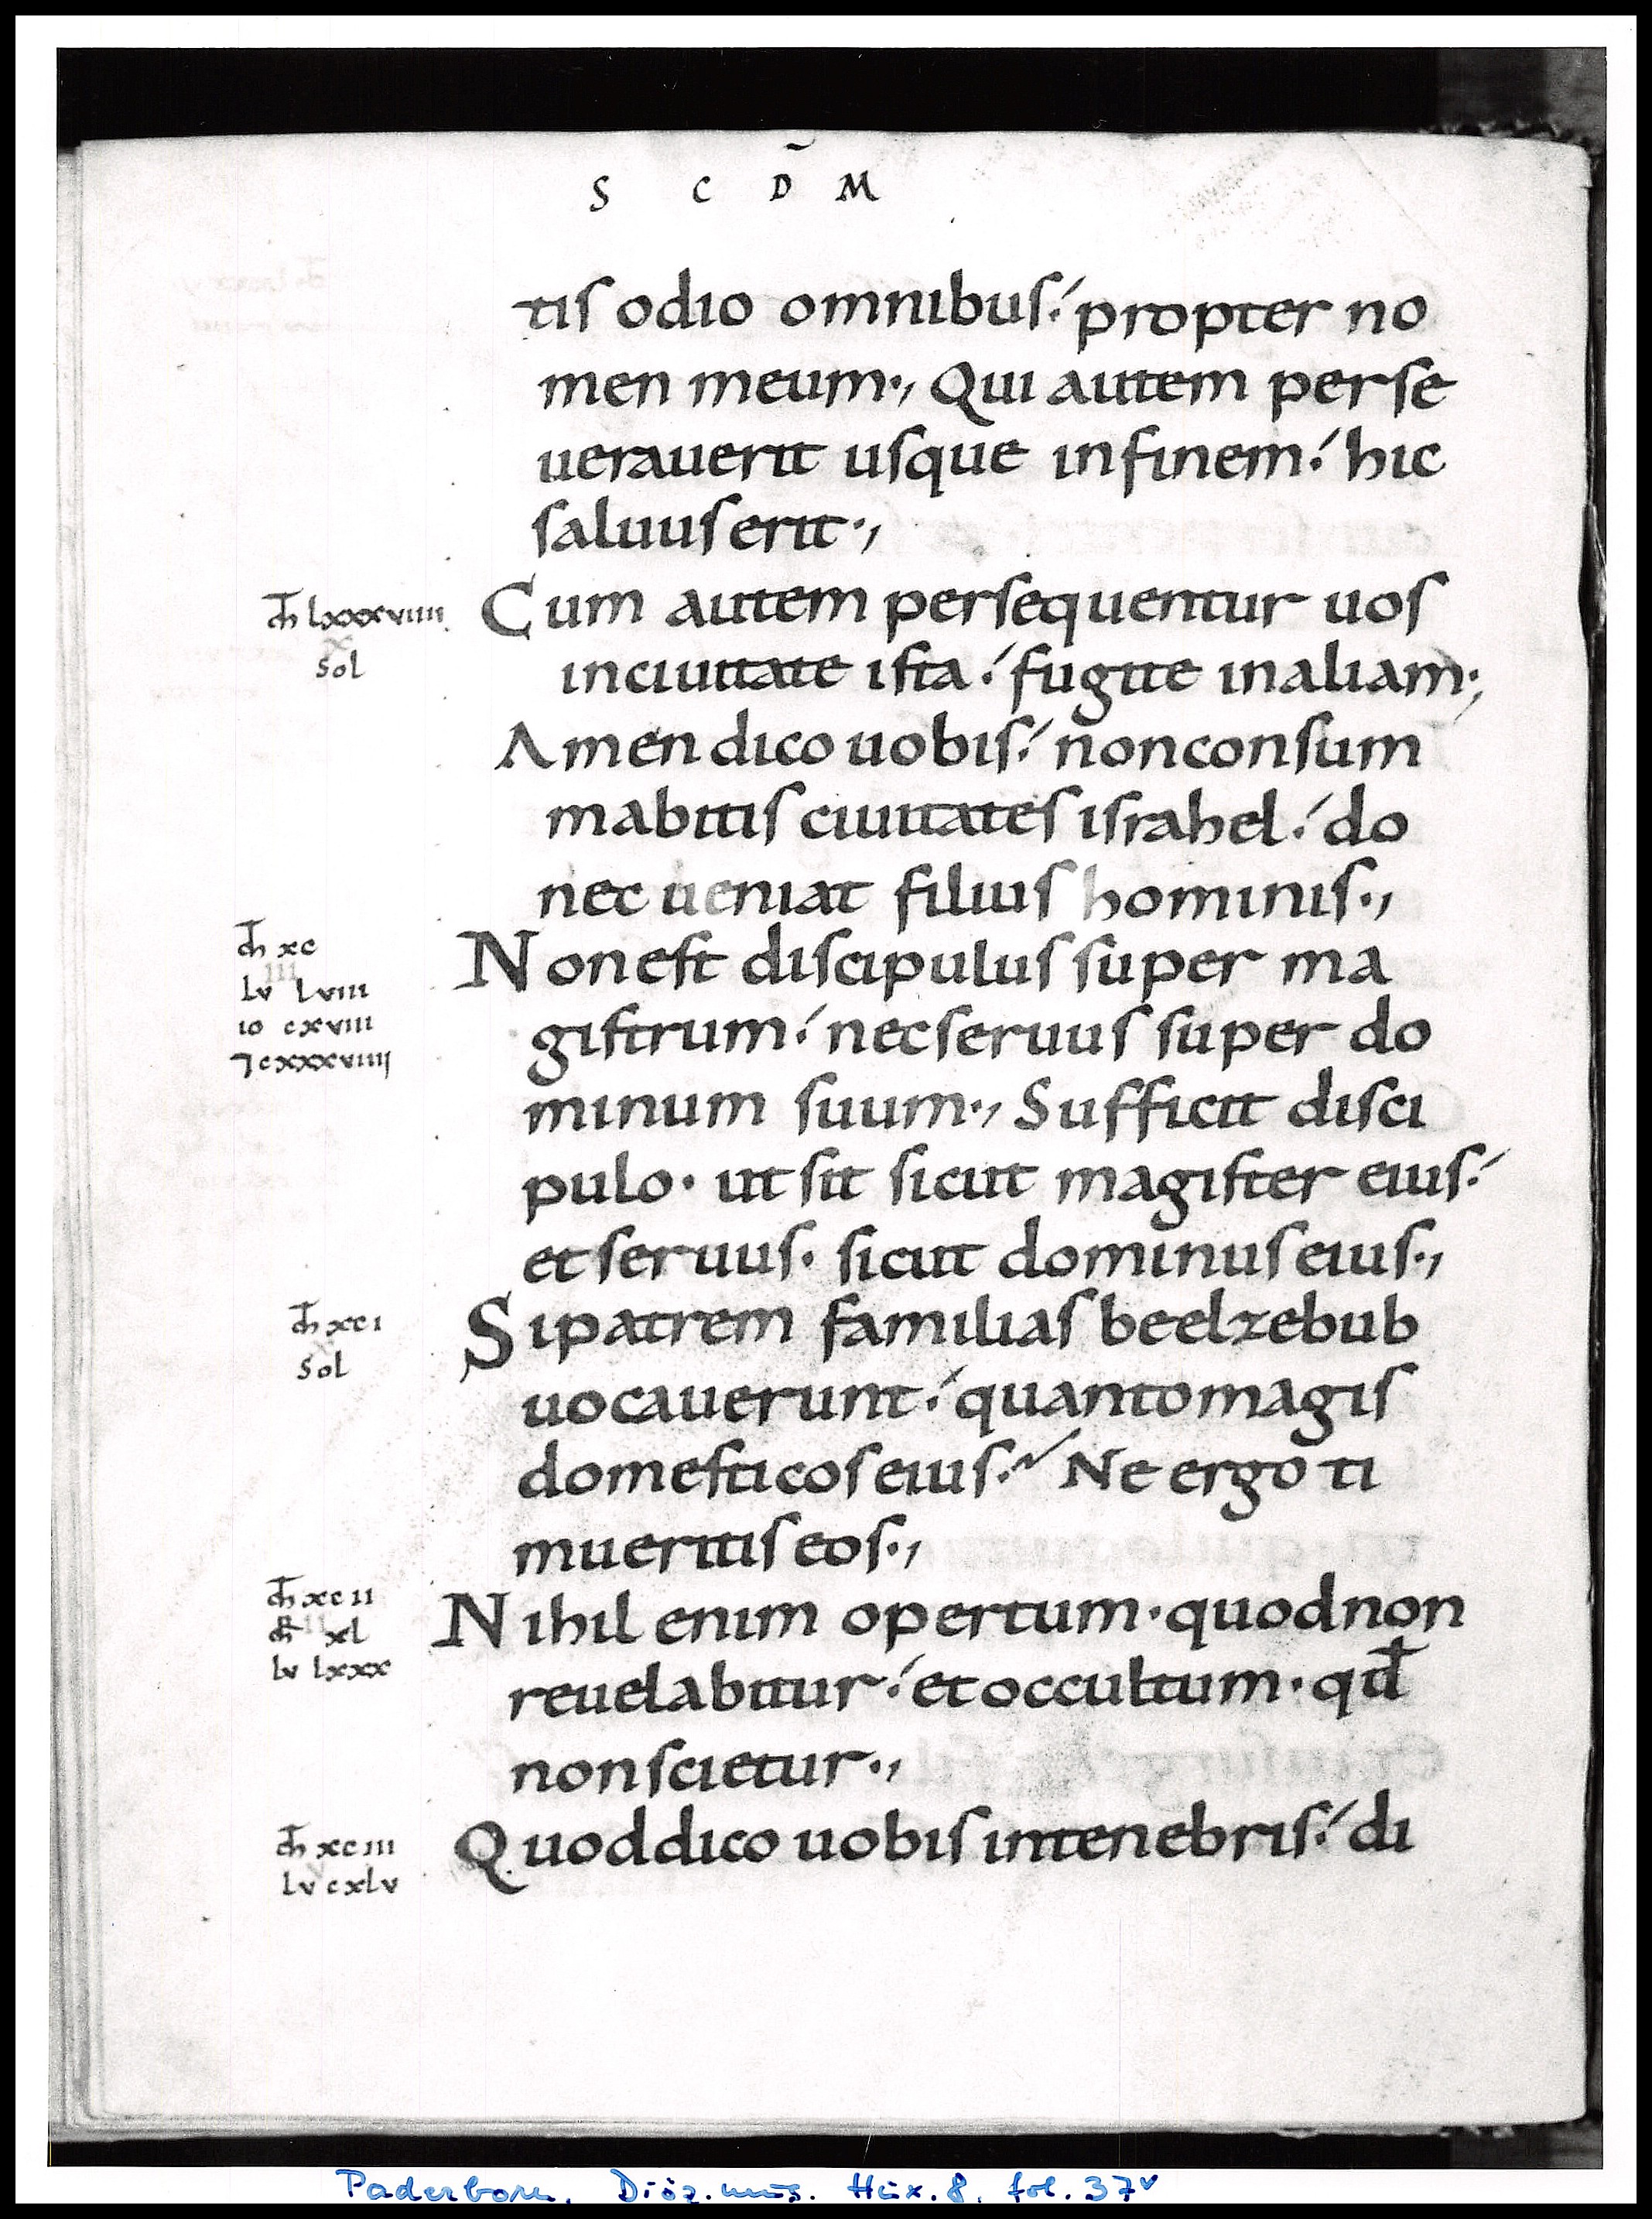 S C D̄ M
tis odio omnibus:́ propter no
men meum·, Qui autem perse
uerauerit usque infinem:́ hic
saluuserit·,
th lxxxviiii
x
sol
Cum autem persequentur uos
inciuitate ista:́ fugite inaliam·,
Amen dico uobis:́ nonconsum
mabitis ciuitates israhel:́ do
nec ueniat filius hominis·,
th xc
iii
lv lviii
io cxviii
⁊ cxxxviiii
Nonest discipulus super ma
gistrum:́ necseruus super do
minum suum·, Sufficit disci
pulo· ut sit sicut magister eius:́
etseruus· sicut dominuseius·,
th xci
x
sol
Sipatrem familias beelzebub
uocauerunt:́ quantomagis
domesticoseius:~ Ne ergo ti
mueritis eos·,
th xcii
ii
xl
lv lxxx
Nihil enim opertum· quodnon
reuelabitur:́ etoccultum· qđ
nonscietur·,
th xciii
v
lv cxlv
Quoddico uobis intenebris:́ di
Paderborn, Diöz.mus. Hüx. 8, fol. 37v